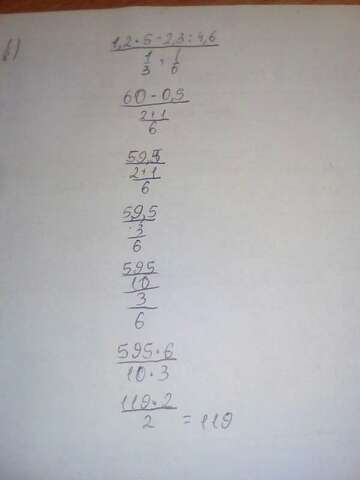 в)
1,2·5-2,3:4,6
1/3+1/6
60-0,5
2+1
6
59,5
2+1
6
59,5
3
6
595
10
3
6
595·6
10·3
119·2
2 = 119